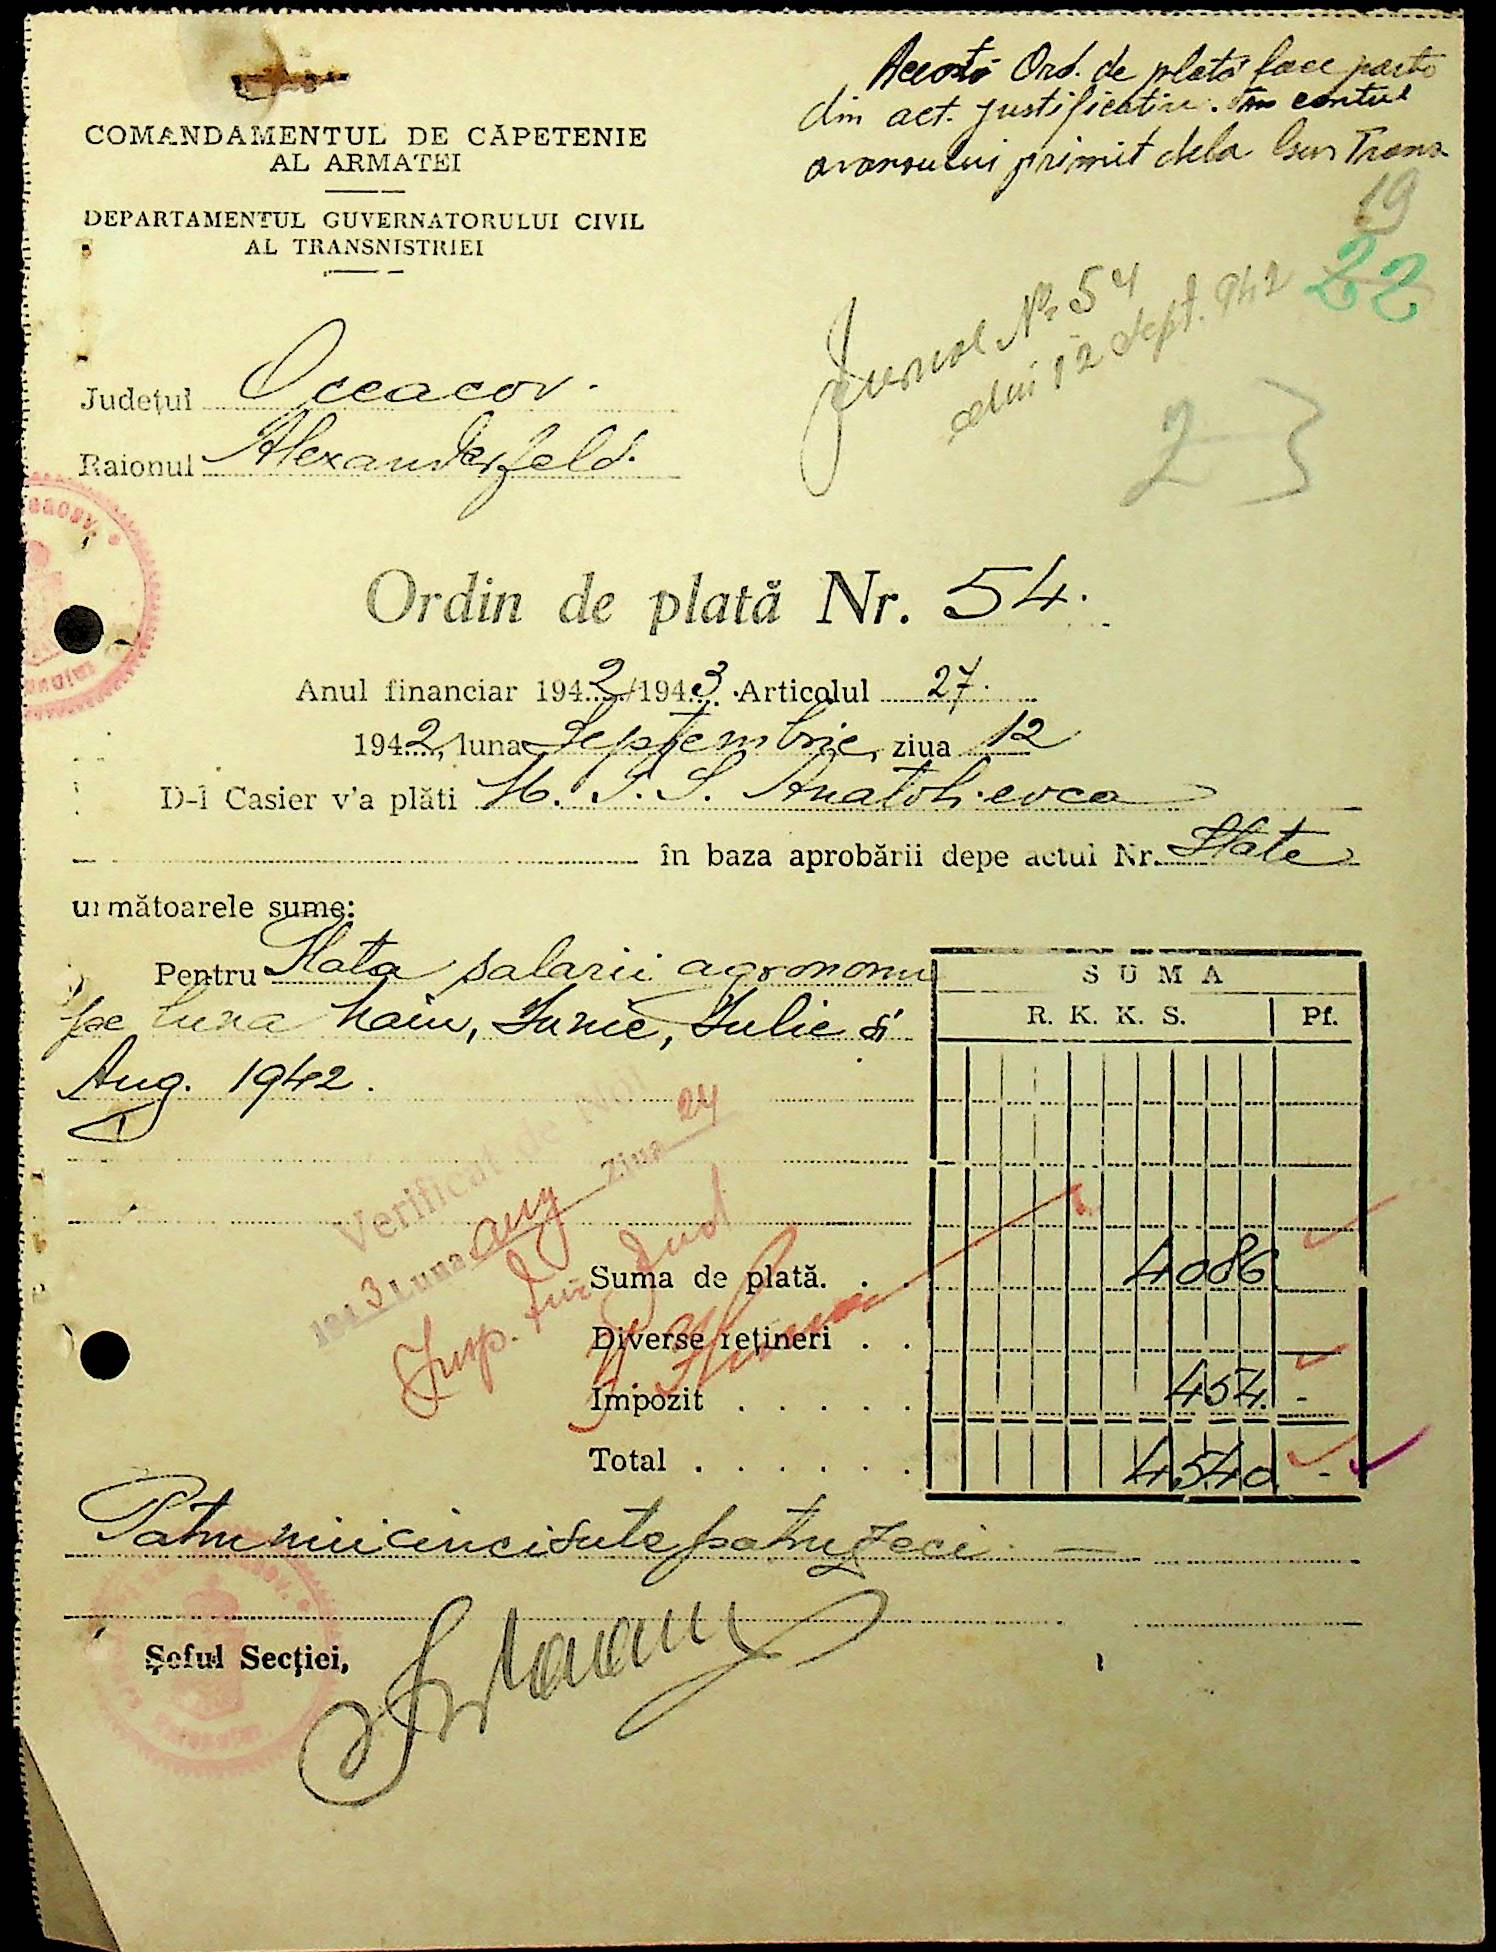 Acest Ord. de plată face parte
din act. justificativ. în contul
avansului primit dela Guv Trans
19
22
COMANDAMENTUL DE CĂPETENIE
AL ARMATEI
DEPARTAMENTUL GUVERNATORULUI CIVIL
AL TRANSNISTRIEI
Jurnal No 54
din 12 Sept. 942
23
Județul Oceacov.
Raionul Alexanderfeld.
Ordin de plată Nr. 54.
Anul financiar 1942/1943. Articolul 27.
1942, luna Septembrie, ziua 12
D-l Casier v'a plăti M. T. S. Anatolievca
în baza aprobării depe actul Nr. State
următoarele sume:
Pentru Plata salarii agronomi
pe luna Maiu, Iunie, Iulie și
Aug. 1942.
SUMA
R. K. K. S. Pf.
Verificat de Noi
1943 Luna aug Ziua 24
Insp. Jud
Suma de plată. . . 4086
Diverse rețineri . .
Impozit . . . . . 454. -
Total . . . . . . 4540 -
Patru mii cinci sute patruzeci. —
Șeful Secției,